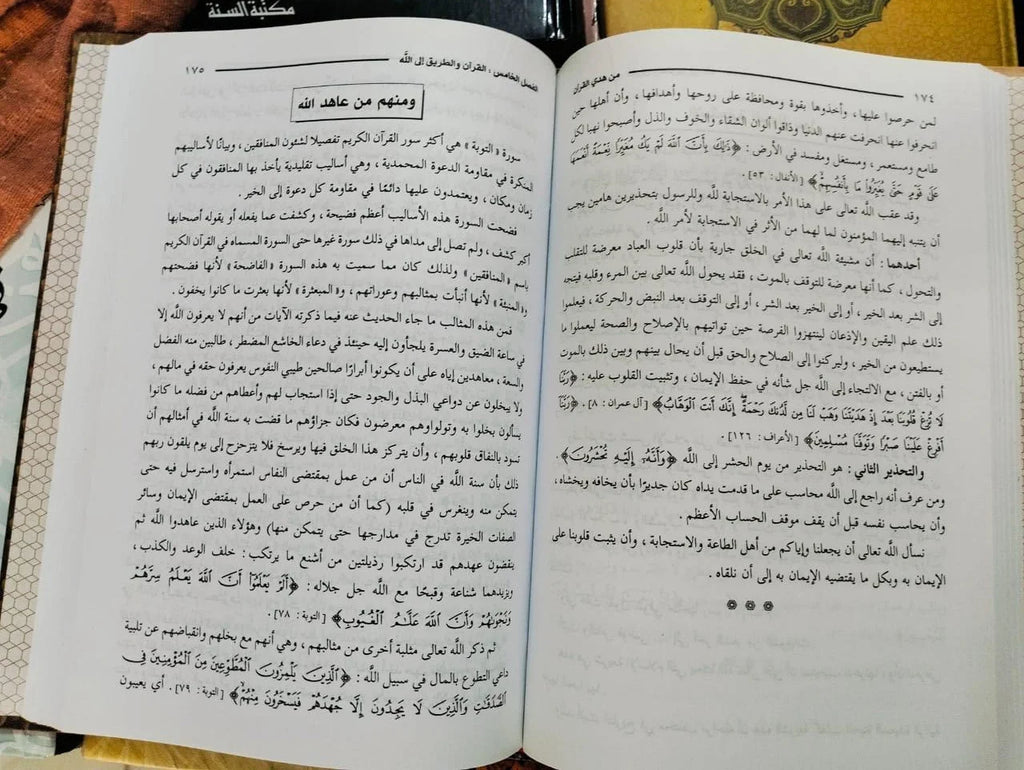 مكتبة السنة
١٧٤
من هدي القرآن
لمن حرصوا عليها، وأخذوها بقوة ومحافظة على روحها وأهدافها، وأن أهلها حين
انحرفوا عنها انحرفت عنهم الدنيا وذاقوا ألوان الشقاء والخوف والذل وأصبحوا نهبا لكل
طامع ومستعمر، ومستغل ومفسد في الأرض: ﴿ذَلِكَ بِأَنَّ اللَّهَ لَمْ يَكُ مُغَيِّرًا نِعْمَةً أَنْعَمَهَا
عَلَىٰ قَوْمٍ حَتَّىٰ يُغَيِّرُوا مَا بِأَنْفُسِهِمْ﴾ [الأنفال: ٥٣].
وقد عقب الله تعالى على هذا الأمر بالاستجابة لله وللرسول بتحذيرين هامين يجب
أن يتنبه إليهما المؤمنون لما لهما من الأثر في الاستجابة لأمر الله.
أحدهما: أن مشيئة الله تعالى في الخلق جارية بأن قلوب العباد معرضة للتقلب
والتحول، كما أنها معرضة للتوقف بالموت، فقد يحول الله تعالى بين المرء وقلبه فيتجه
إلى الشر بعد الخير، أو إلى الخير بعد الشر، أو إلى التوقف بعد النبض والحركة، فيعلموا
ذلك علم اليقين والإذعان لينتهزوا الفرصة حين تواتيهم بالإصلاح والصحة ليعملوا ما
يستطيعون من الخير، وليركنوا إلى الصلاح والحق قبل أن يحال بينهم وبين ذلك بالموت
أو بالفتن، مع الالتجاء إلى الله جل شأنه في حفظ الإيمان، وتثبيت القلوب عليه: ﴿رَبَّنَا
لَا تُزِغْ قُلُوبَنَا بَعْدَ إِذْ هَدَيْتَنَا وَهَبْ لَنَا مِن لَّدُنكَ رَحْمَةً إِنَّكَ أَنتَ الْوَهَّابُ﴾ [آل عمران: ٨]. ﴿رَبَّنَا
أَفْرِغْ عَلَيْنَا صَبْرًا وَتَوَفَّنَا مُسْلِمِينَ﴾ [الأعراف: ١٢٦].
والتحذير الثاني: هو التحذير من يوم الحشر إلى الله ﴿وَأَنَّهُ إِلَيْهِ تُحْشَرُونَ﴾.
ومن عرف أنه راجع إلى الله محاسب على ما قدمت يداه كان جديرًا بأن يخافه ويخشاه،
وأن يحاسب نفسه قبل أن يقف موقف الحساب الأعظم.
نسأل الله تعالى أن يجعلنا وإياكم من أهل الطاعة والاستجابة، وأن يثبت قلوبنا على
الإيمان به وبكل ما يقتضيه الإيمان به إلى أن نلقاه.
الفصل الخامس: القرآن والطريق إلى الله
١٧٥
ومنهم من عاهد الله
سورة «التوبة» هي أكثر سور القرآن الكريم تفصيلا لشئون المنافقين، وبيانًا لأساليبهم
المنكرة في مقاومة الدعوة المحمدية، وهي أساليب تقليدية يأخذ بها المنافقون في كل
زمان ومكان، ويعتمدون عليها دائمًا في مقاومة كل دعوة إلى الخير.
فضحت السورة هذه الأساليب أعظم فضيحة، وكشفت عما يفعله أو يقوله أصحابها
أكبر كشف، ولم تصل إلى مداها في ذلك سورة غيرها حتى السورة المسماه في القرآن الكريم
باسم «المنافقين» ولذلك كان مما سميت به هذه السورة «الفاضحة» لأنها فضحتهم
و«المنبئة» لأنها أنبأت بمثالبهم وعوراتهم، و«المبعثرة» لأنها بعثرت ما كانوا يخفون.
فمن هذه المثالب ما جاء الحديث عنه فيما ذكرته الآيات من أنهم لا يعرفون الله إلا
في ساعة الضيق والعسرة يلجأون إليه حينئذ في دعاء الخاشع المضطر، طالبين منه الفضل
والسعة، معاهدين إياه على أن يكونوا أبرارًا صالحين طيبي النفوس يعرفون حقه في مالهم،
ولا يبخلون عن دواعي البذل والجود حتى إذا استجاب لهم وأعطاهم من فضله ما كانوا
يسألون بخلوا به وتولوا وهم معرضون فكان جزاؤهم ما قضت به سنة الله في أمثالهم أن
تسود بالنفاق قلوبهم، وأن يتركز هذا الخلق فيها ويرسخ فلا يتزحزح إلى يوم يلقون ربهم
ذلك بأن سنة الله في الناس أن من عمل بمقتضى النفاس استمرأه واسترسل فيه حتى
يتمكن منه وينغرس في قلبه (كما أن من حرص على العمل بمقتضى الإيمان وسائر
الصفات الخيرة تدرج في مدارجها حتى يتمكن منها) وهؤلاء الذين عاهدوا الله ثم
ينقضون عهدهم قد ارتكبوا رذيلتين من أشنع ما يرتكب: خلف الوعد والكذب،
ويزيدهما شناعة وقبحًا مع الله جل جلاله: ﴿أَلَمْ يَعْلَمُوا أَنَّ اللَّهَ يَعْلَمُ سِرَّهُمْ
وَنَجْوَاهُمْ وَأَنَّ اللَّهَ عَلَّامُ الْغُيُوبِ﴾ [التوبة: ٧٨].
ثم ذكر الله تعالى مثلبة أخرى من مثالبهم، وهي أنهم مع بخلهم وانقباضهم عن تلبية
داعي التطوع بالمال في سبيل الله: ﴿الَّذِينَ يَلْمِزُونَ الْمُطَّوِّعِينَ مِنَ الْمُؤْمِنِينَ فِي
الصَّدَقَاتِ وَالَّذِينَ لَا يَجِدُونَ إِلَّا جُهْدَهُمْ فَيَسْخَرُونَ مِنْهُمْ﴾ [التوبة: ٧٩]. أي يعيبون